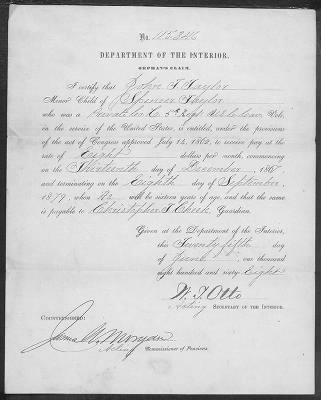 No. 115,246
DEPARTMENT OF THE INTERIOR.
ORPHAN'S CLAIM.
I certify that John T. Taylor
Minor Child of Spencer Taylor
who was a Private Co. 3d Regt. Vols.
in the service of the United States, is entitled, under the provisions
of the act of Congress approved July 14, 1862, to receive pay at the
rate of Eight dollars per month, commencing
on the Thirteenth day of December, 186
and terminating on the Eighth day of September,
1877, when he will be sixteen years of age, and that the same
is payable to Christopher T. Cheek, Guardian.
Given at the Department of the Interior,
this Twenty fifth day
of June, one thousand
eight hundred and sixty Eight
W. T. Otto
Acting SECRETARY OF THE INTERIOR.
COUNTERSIGNED:
Acting Commissioner of Pensions.